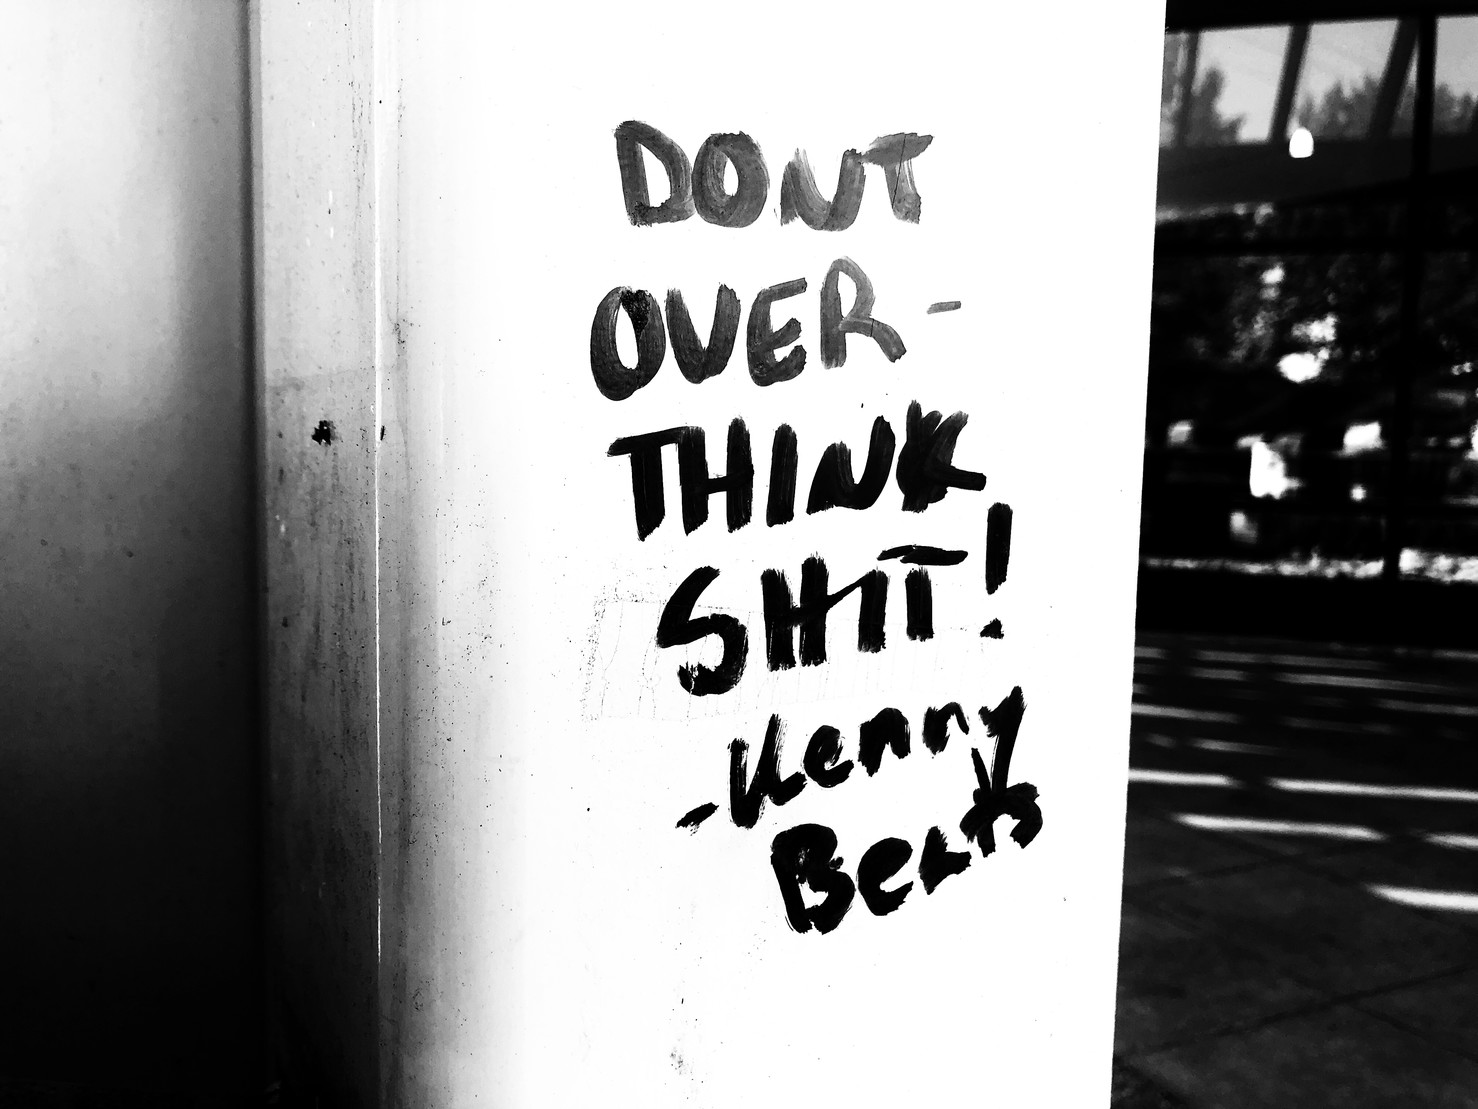 DONT
OVER-
THINK
SHIT!
-Kenny
Beats